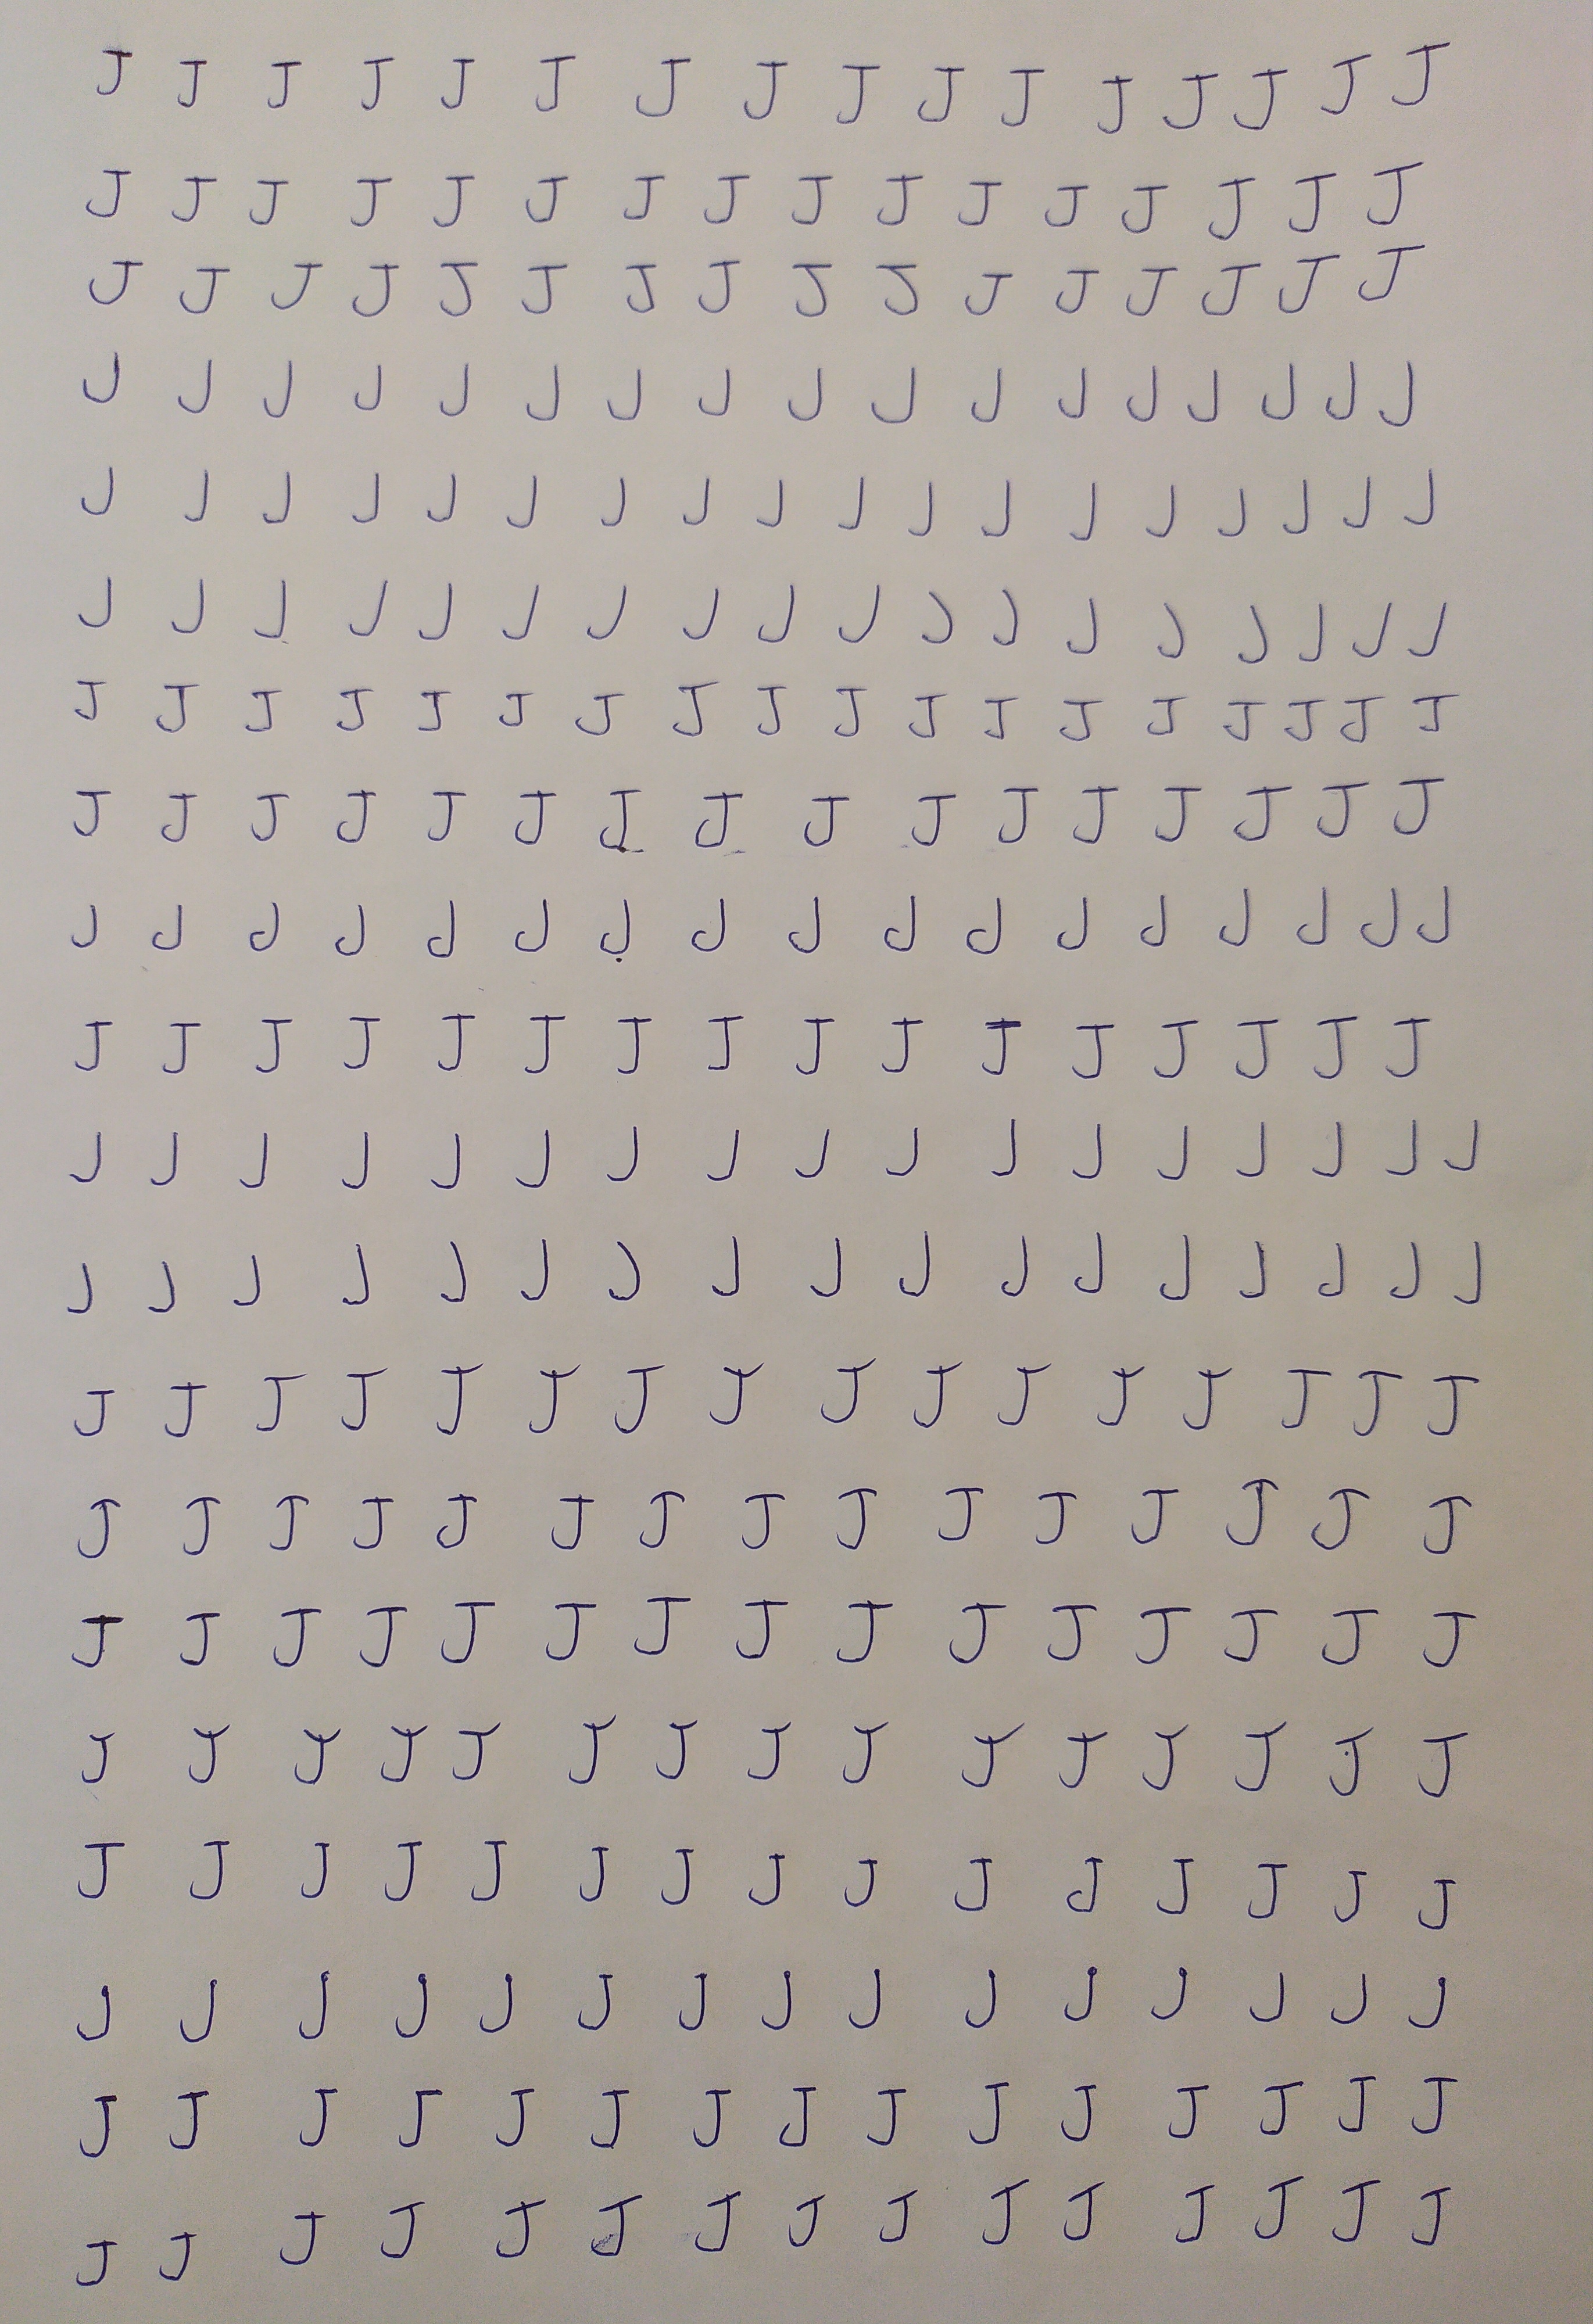 J J J J J J J J J J J J J J J J
J J J J J J J J J J J J J J J J
J J J J J J J J J J J J J J J J
J J J J J J J J J J J J J J J J J
J J J J J J J J J J J J J J J J J J
J J J J J J J J J J J J J J J J J J
J J J J J J J J J J J J J J J J J J
J J J J J J J J J J J J J J J J
J J J J J J J J J J J J J J J J J
J J J J J J J J J J J J J J J J
J J J J J J J J J J J J J J J J J
J J J J J J J J J J J J J J J J J
J J J J J J J J J J J J J J J J
J J J J J J J J J J J J J J J
J J J J J J J J J J J J J J J
J J J J J J J J J J J J J J J
J J J J J J J J J J J J J J J
J J J J J J J J J J J J J J J
J J J J J J J J J J J J J J J
J J J J J J J J J J J J J J J